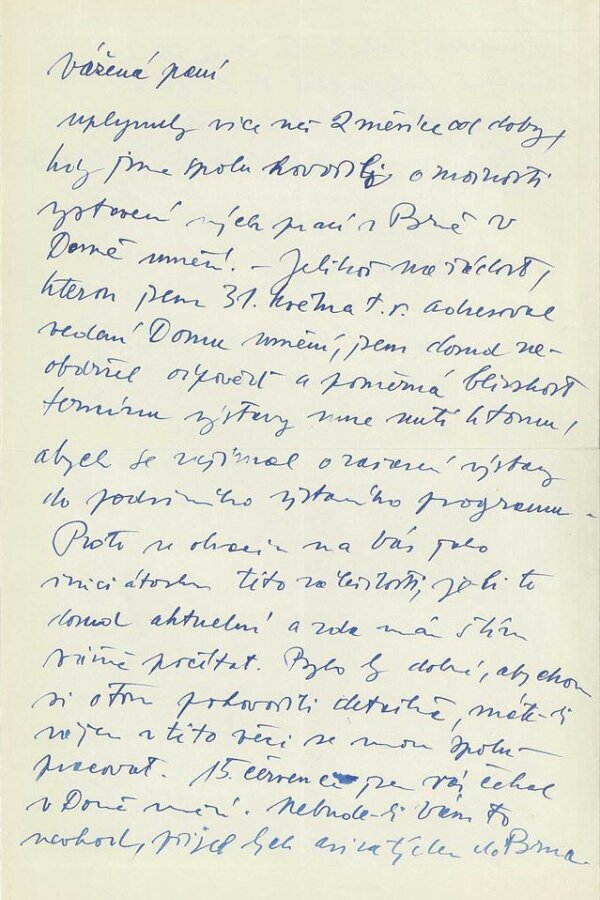 Vážená paní
uplynuly více než 2 měsíce od doby,
kdy jsme spolu hovořili o možnosti
vystavení mých prací v Brně v
Domě umění. – Jelikož na žádost,
kterou jsem 31. května t. r. adresoval
vedení Domu umění, jsem dosud ne-
obdržel odpověď a poměrná blízkost
termínu výstavy mne nutí k tomu,
abych se zajímal o zařazení výstavy
do podzimního výstavního programu.
Proto se obracím na Vás jako
iniciátorku této záležitosti, je-li to
dosud aktuelní a zda mám s tím
vážně počítat. Bylo by dobré, abychom
si o tom pohovořili detailně, máte-li
zájem v této věci se mnou spolu-
pracovat. 15. července jsem Vás čekal
v Domě umění. Nebude-li Vám to
nevhod, přijel bych asi za týden do Brna.